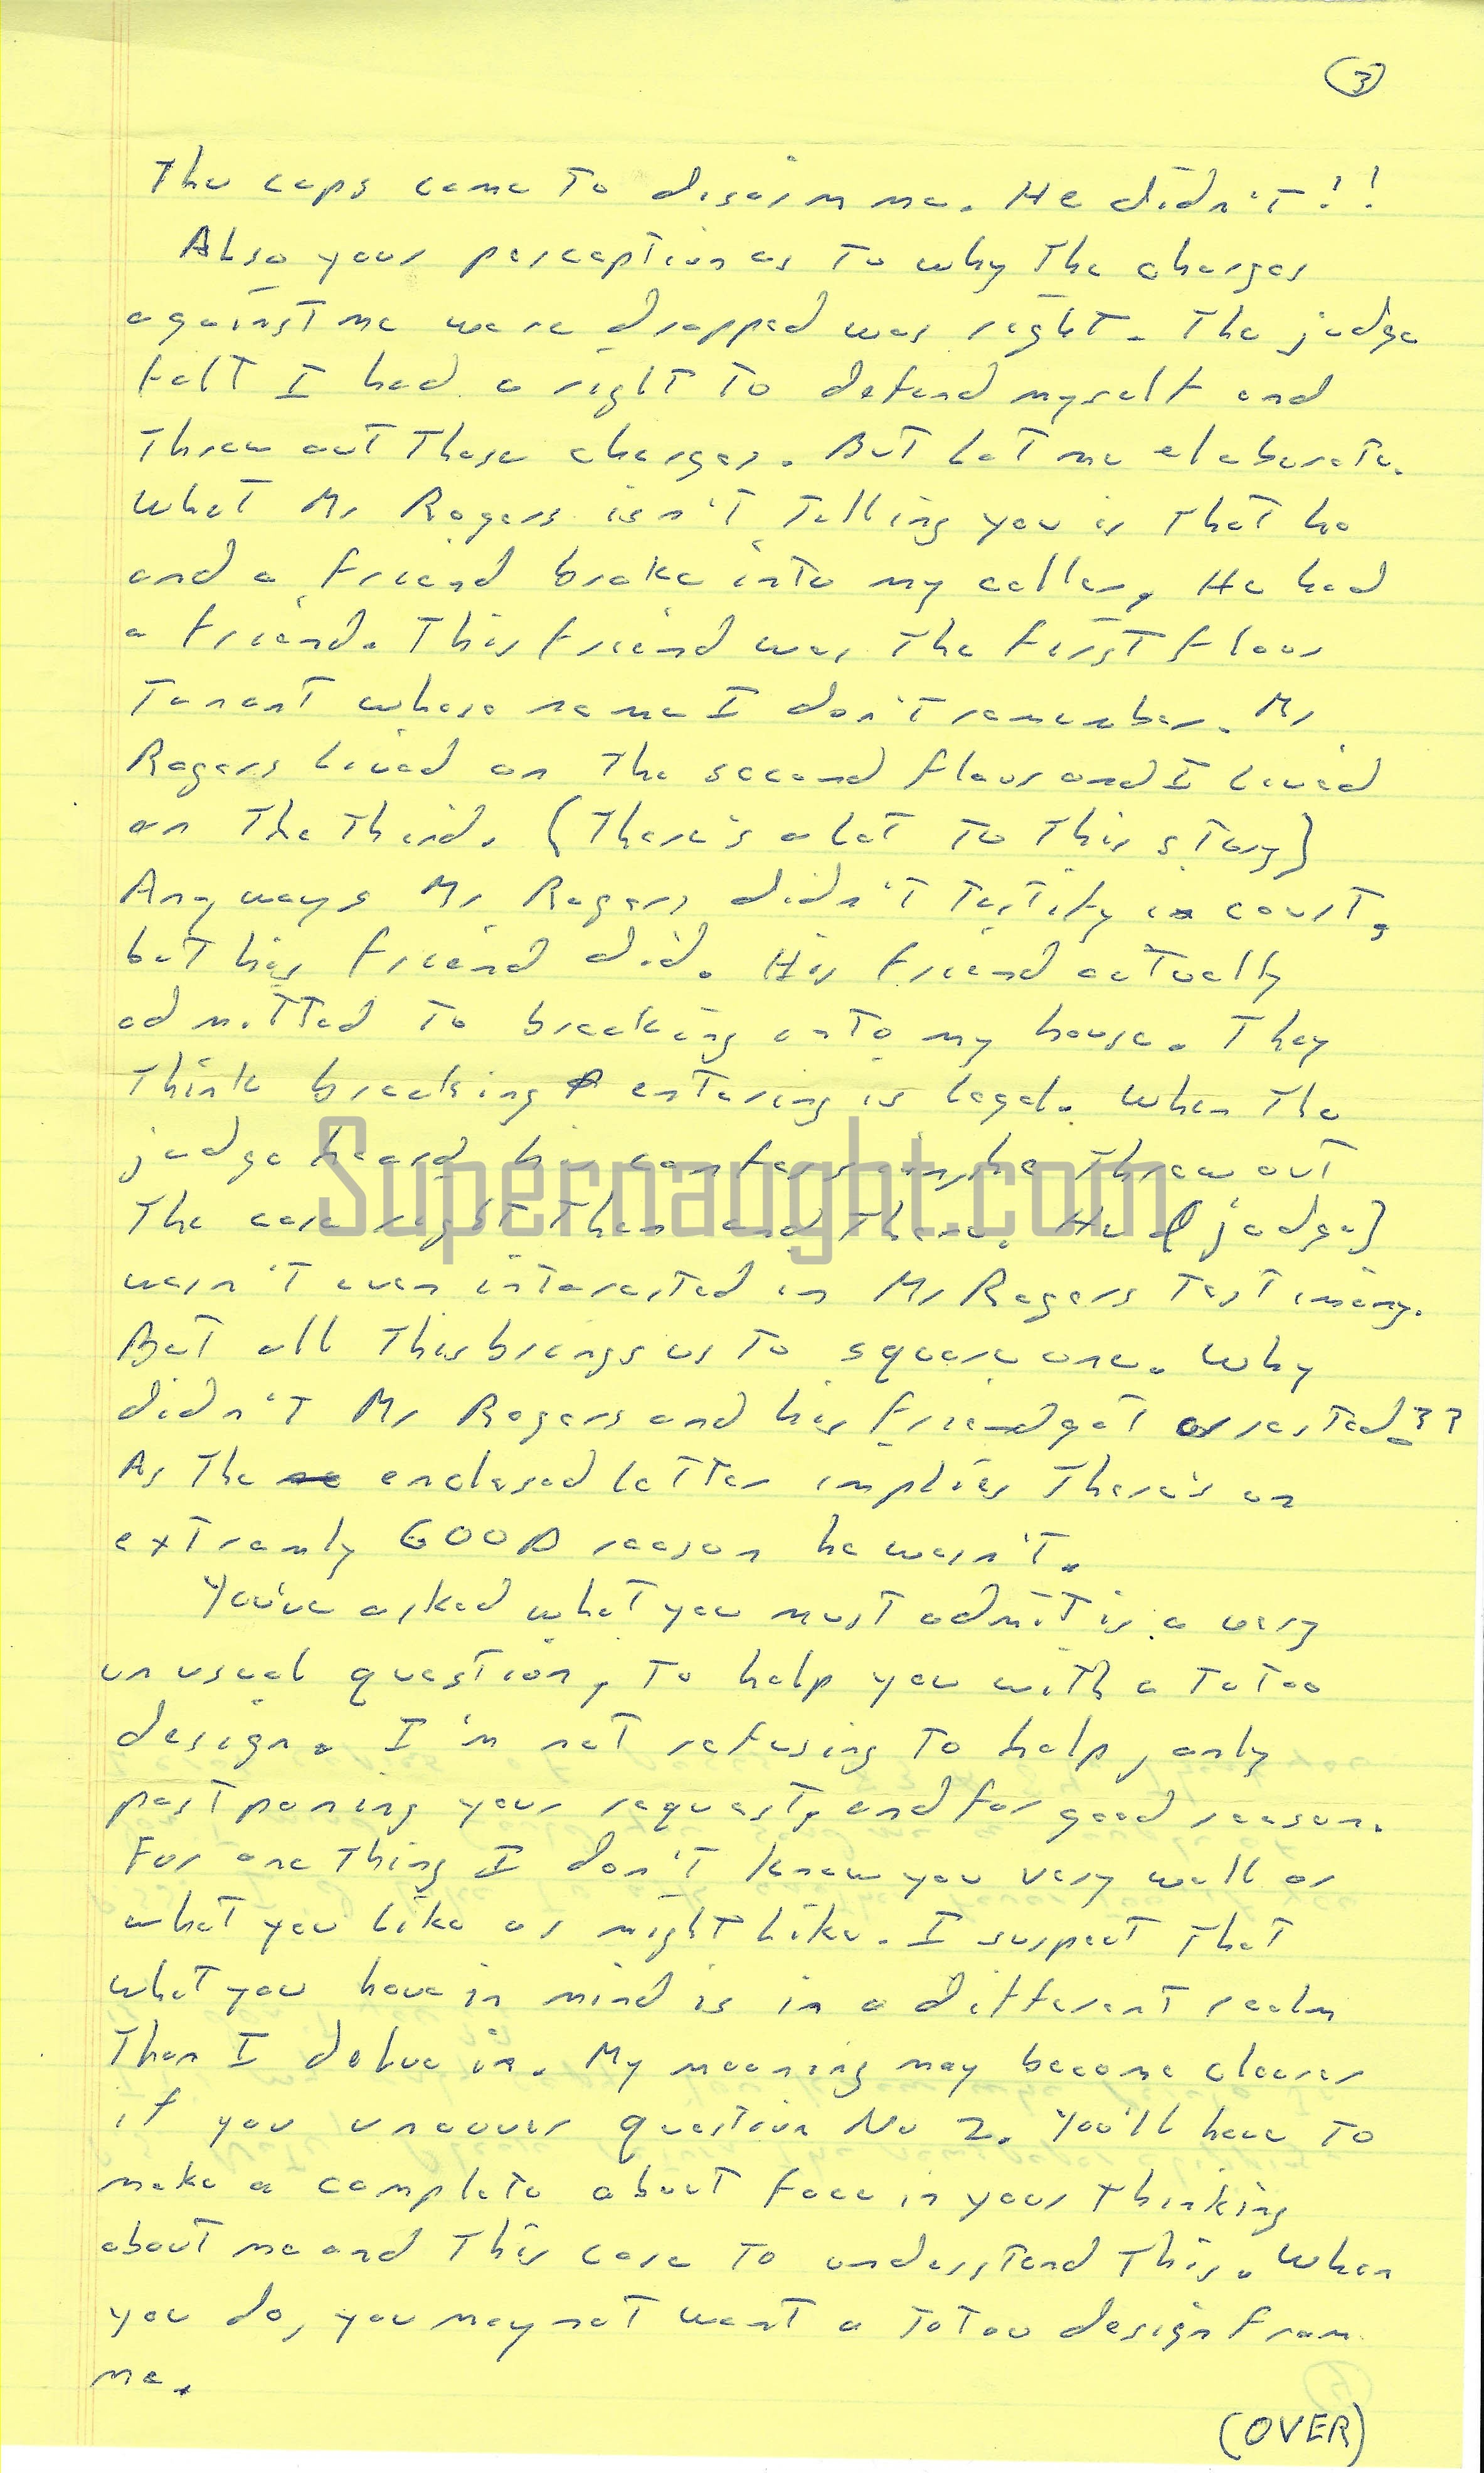 3
The cops came to disarm me. He didn't!!
Also your perception as to why the charges
against me were dropped was right. The judge
felt I had a right to defend myself and
threw out those charges. But let me elaborate.
What Mr Rogers isn't telling you is that he
and a friend broke into my cellar, He had
a friend. This friend was the first floor
tenant whose name I don't remember. Mr
Rogers lived on the second floor and I lived
on the third. (There's a lot to this story)
Anyways Mr Rogers didn't testify in court,
but his friend did. His friend actually
admitted to breaking into my house. They
think breaking & entering is legal. When the
judge heard his confession, he threw out
the case right then and there. He (judge)
wasn't even interested in Mr Rogers testimony.
But all this brings us to square one. Why
didn't Mr Rogers and his friend get arrested??
As the enclosed letter implies there's an
extremly GOOD reason he wasn't.
You've asked what you must admit is a very
unusual question, to help you with a tatoo
design. I'm not refusing to help, only
postponing your request, and for good reason.
For one thing I don't know you very well or
what you like or might like. I suspect that
what you have in mind is in a different realm
than I delve in. My meaning may become clearer
if you uncover question No 2. You'll have to
make a complete about face in your thinking
about me and this case to understand this. When
you do, you may not want a tatoo design from
me.
(OVER)
Supernaught.com